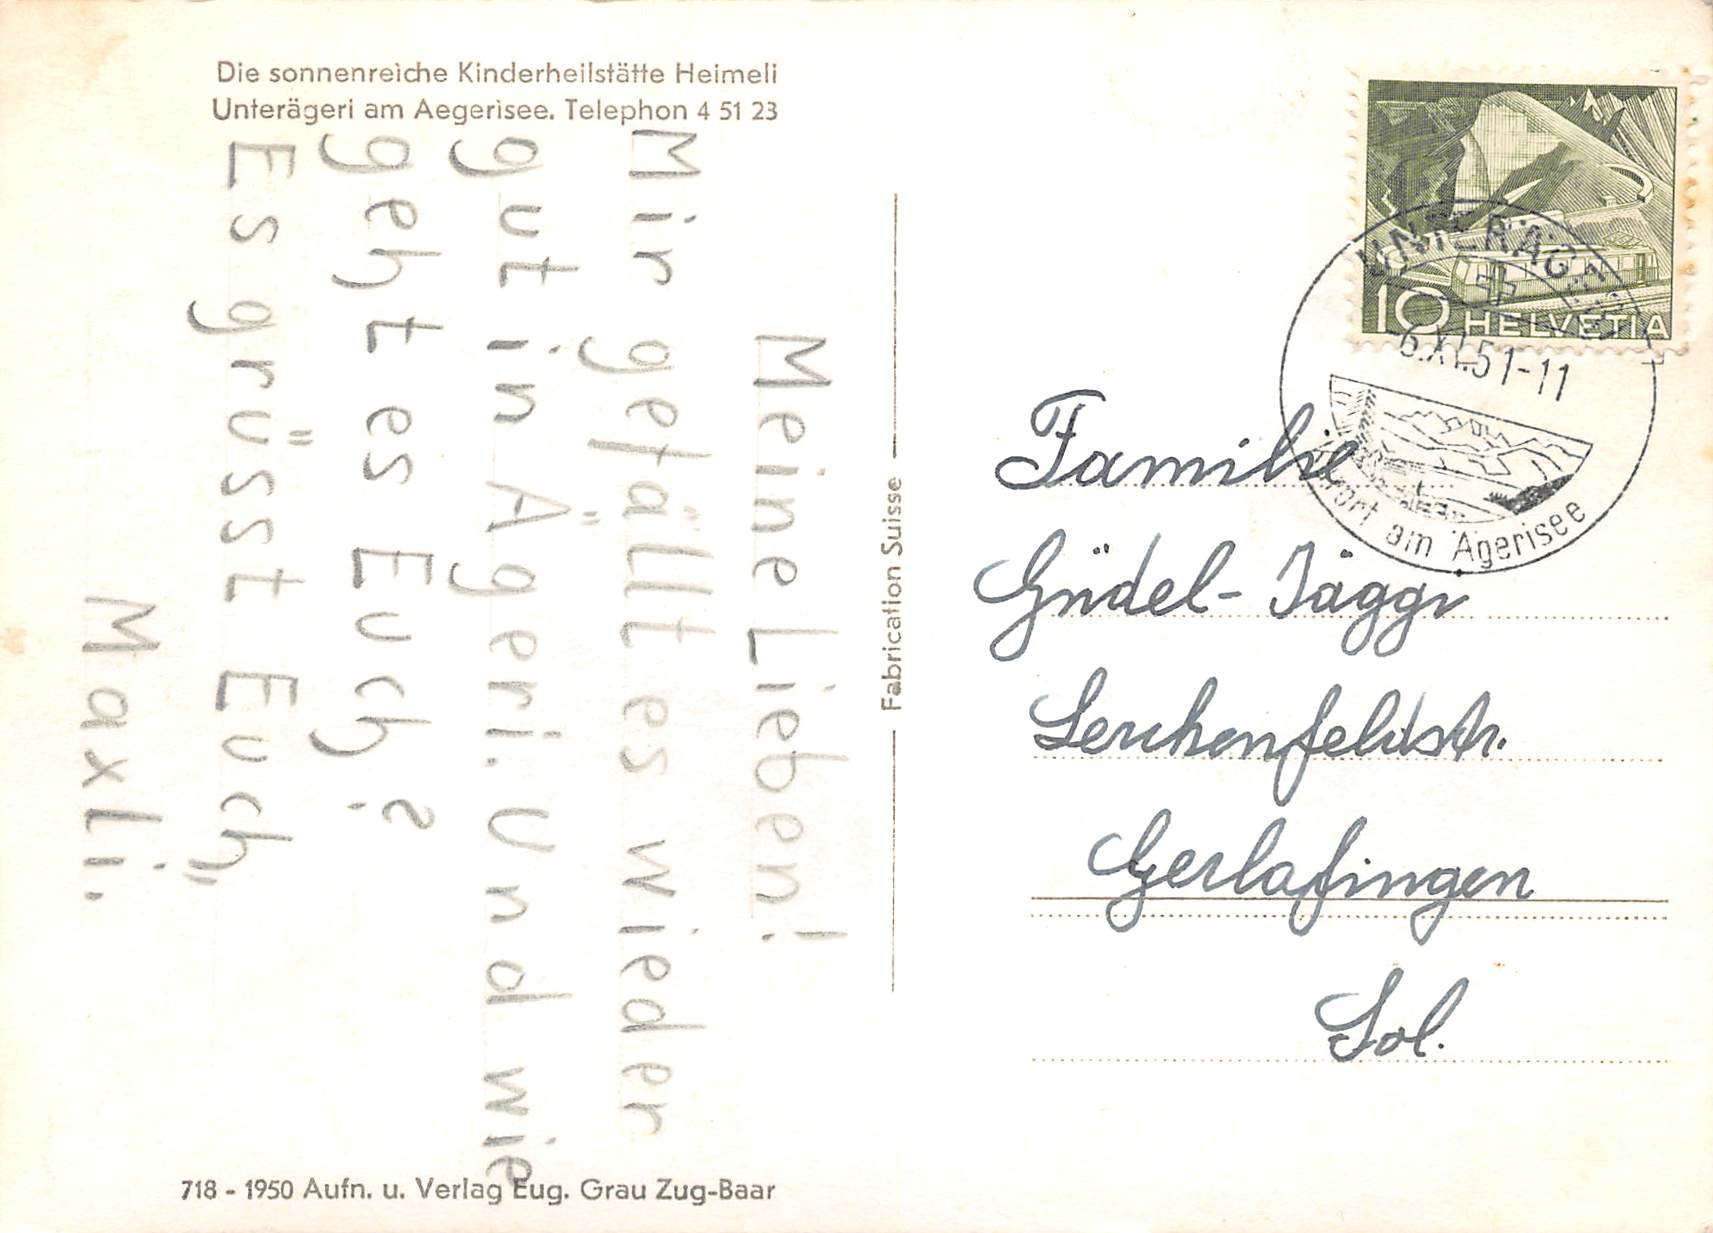 Die sonnenreiche Kinderheilstätte Heimeli
Unterägeri am Aegerisee. Telephon 4 51 23
Meine Lieben!
Mir gefällt es wieder
gut in Ägeri. Und wie
geht es Euch?
Es grüsst Euch,
Maxli.
718 - 1950 Aufn. u. Verlag Eug. Grau Zug-Baar
Fabrication Suisse
10 HELVETIA
UNTERÄGERI
6.XI.51-11
am Ägerisee
Familie
Güdel-Jäggi
Lerchenfeldstr.
Gerlafingen
Sol.